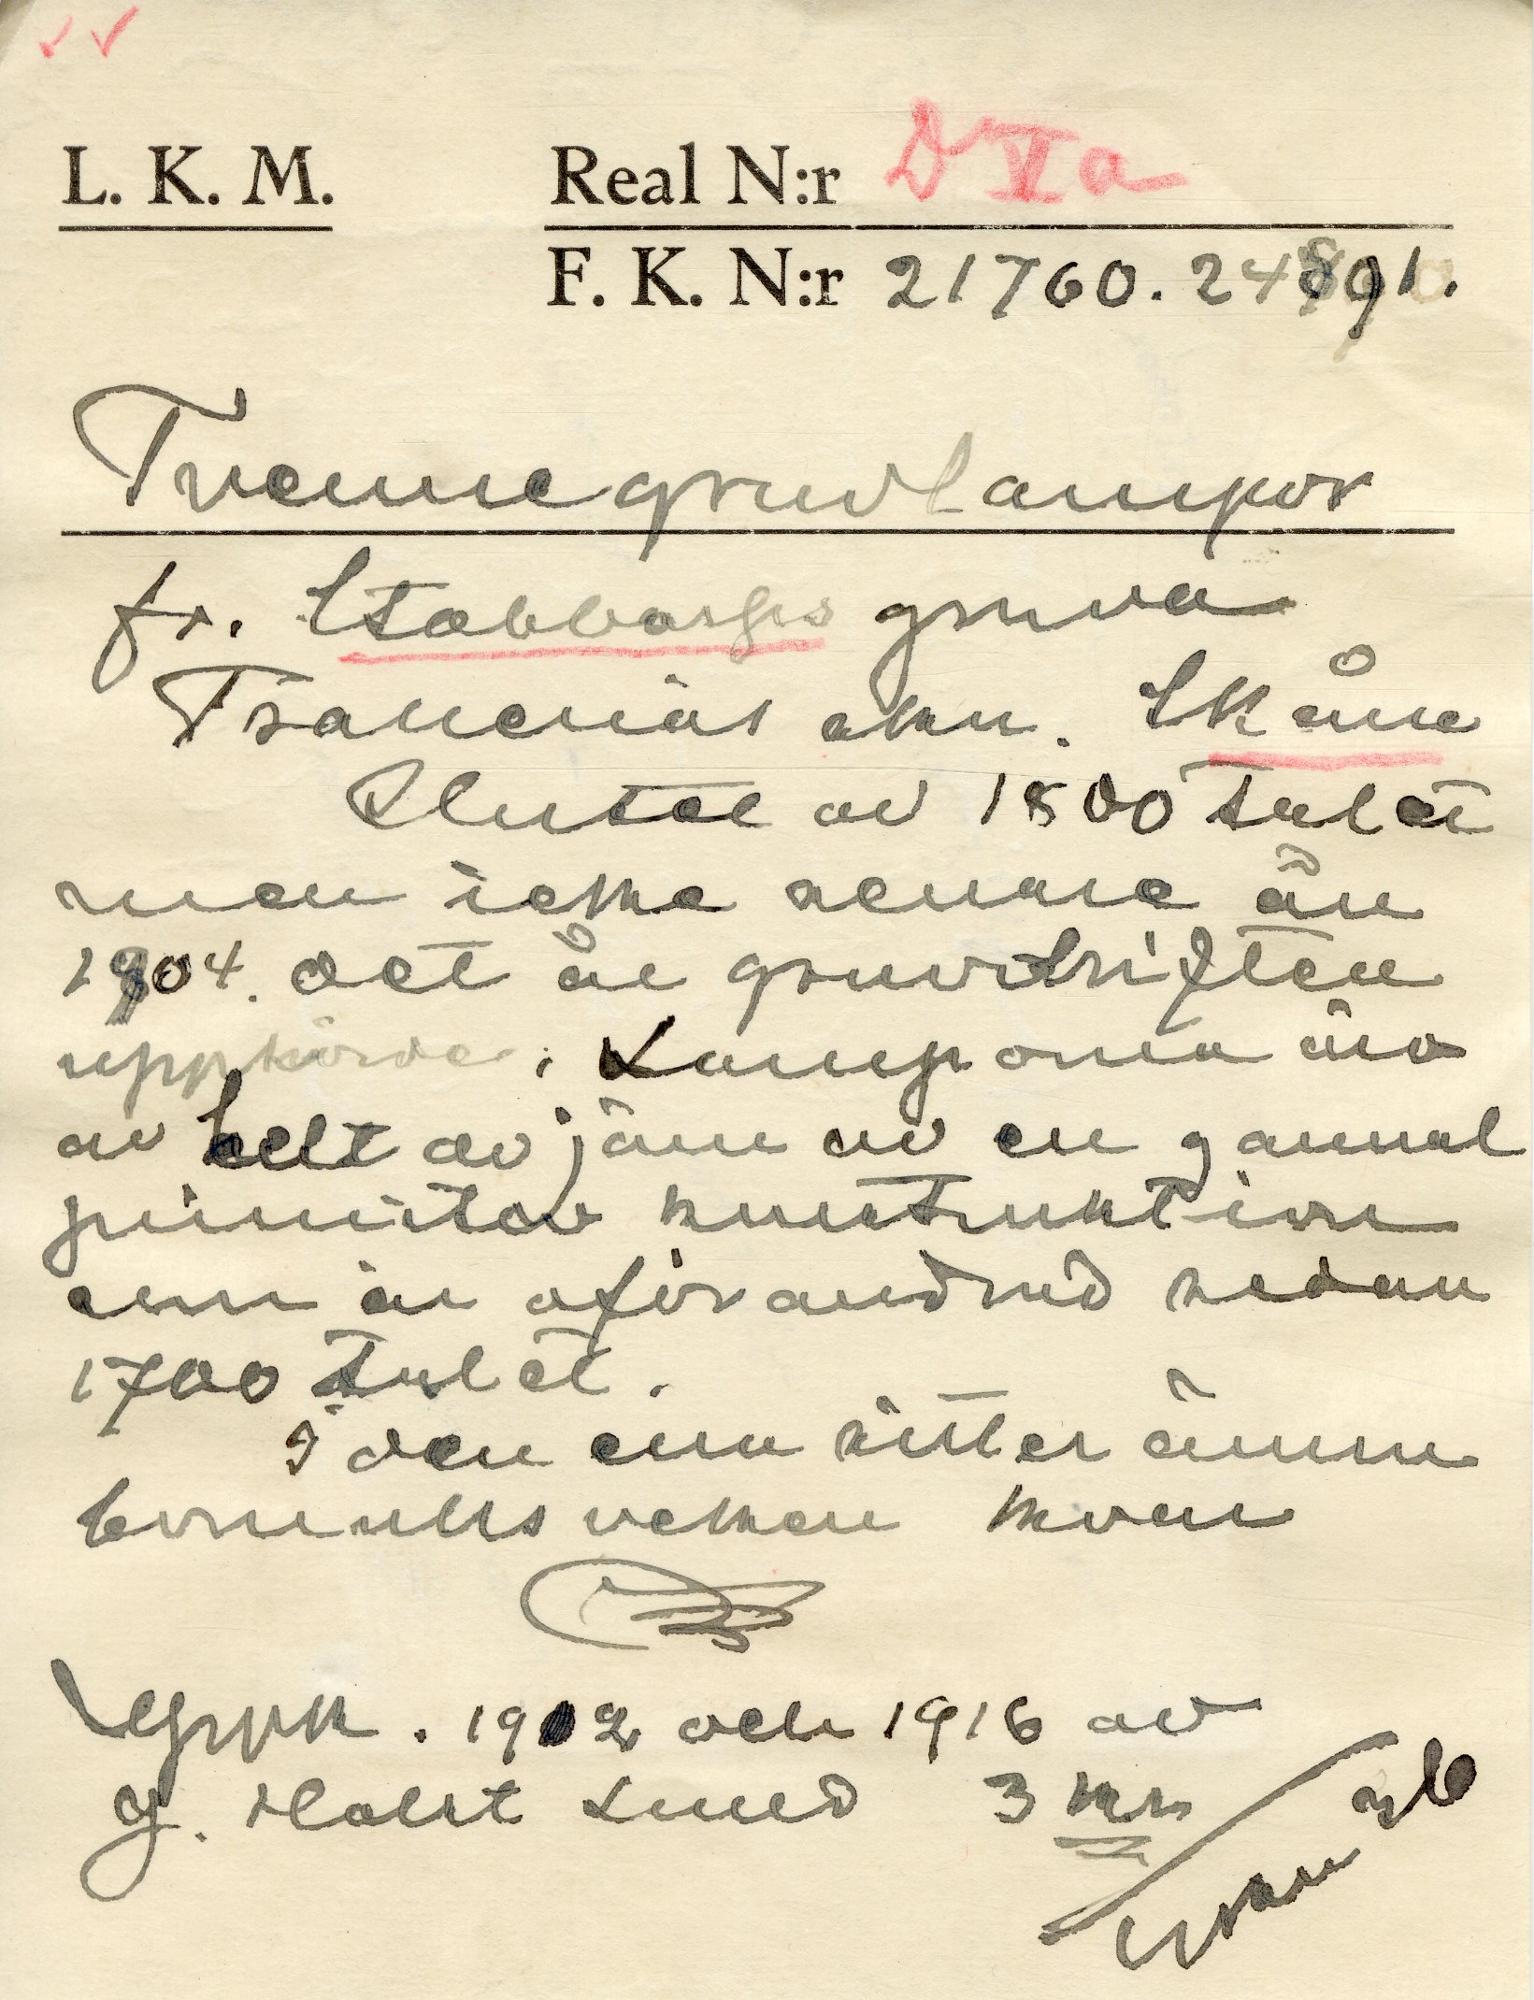 L. K. M.
Real N:r D VI a
F. K. N:r 21760. 24891.
Tvenne gruvlampor
fr. Stabbarps gruva
Skåne
Slutet av 1800 talet
men icke senare än
1904. det år gruvdriften
upphörde. Lamporna äro
av helt av järn av en gammal
primitiv konstruktion
som är oförändrad sedan
1700 talet.
I den ena sitter ännu
bomullsveken kvar
Uppk. 1912 och 1916 av
G. Holst Lund 3 kr